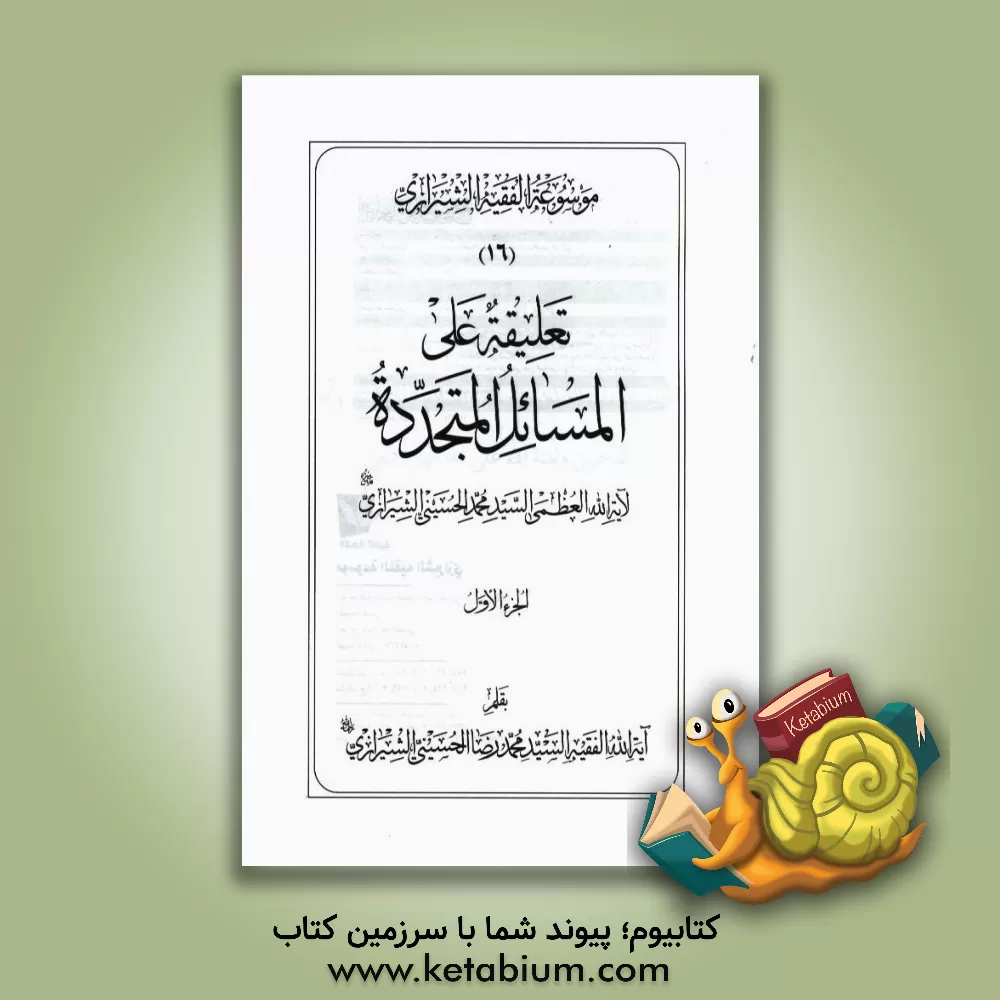 مَوْسُوعَةُ الفَقِيهِ الشِّيرَازِيِّ
(١٦)
تَعلِيقَةٌ عَلَى
المَسَائِلُ المُتَجَدِّدَةُ
لآيةِ اللهِ العُظْمَى السَّيِّدِ مُحَمَّدِ الحُسَيْنِيِّ الشِّيرَازِيِّ
الجزء الأوّل
بقلم
آيَةِ اللهِ الفَقِيهِ السَّيِّدِ مُحَمَّد رِضَا الحُسَيْنِيِّ الشِّيرَازِيِّ
Ketabium
کتابیوم؛ پیوند شما با سرزمین کتاب
www.ketabium.com